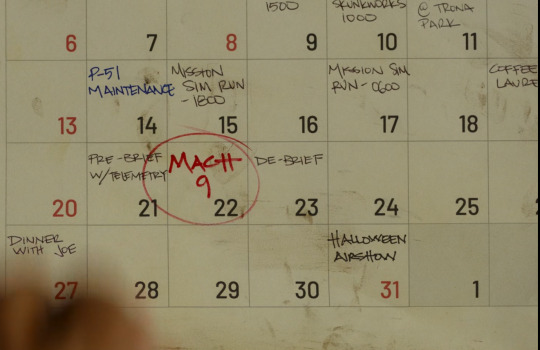 1500
SKUNKWORKS
1000
@ TRONA
PARK
6
7
8
9
10
11
P-51
MAINTENANCE
MISSION
SIM RUN
- 1800
MISSION SIM
RUN - 0600
COFFEE
13
14
15
16
17
18
PRE-BRIEF
W/TELEMETRY
MACH
9
DE-BRIEF
20
21
22
23
24
25
DINNER
WITH JOE
HALLOWEEN
AIRSHOW
27
28
29
30
31
1